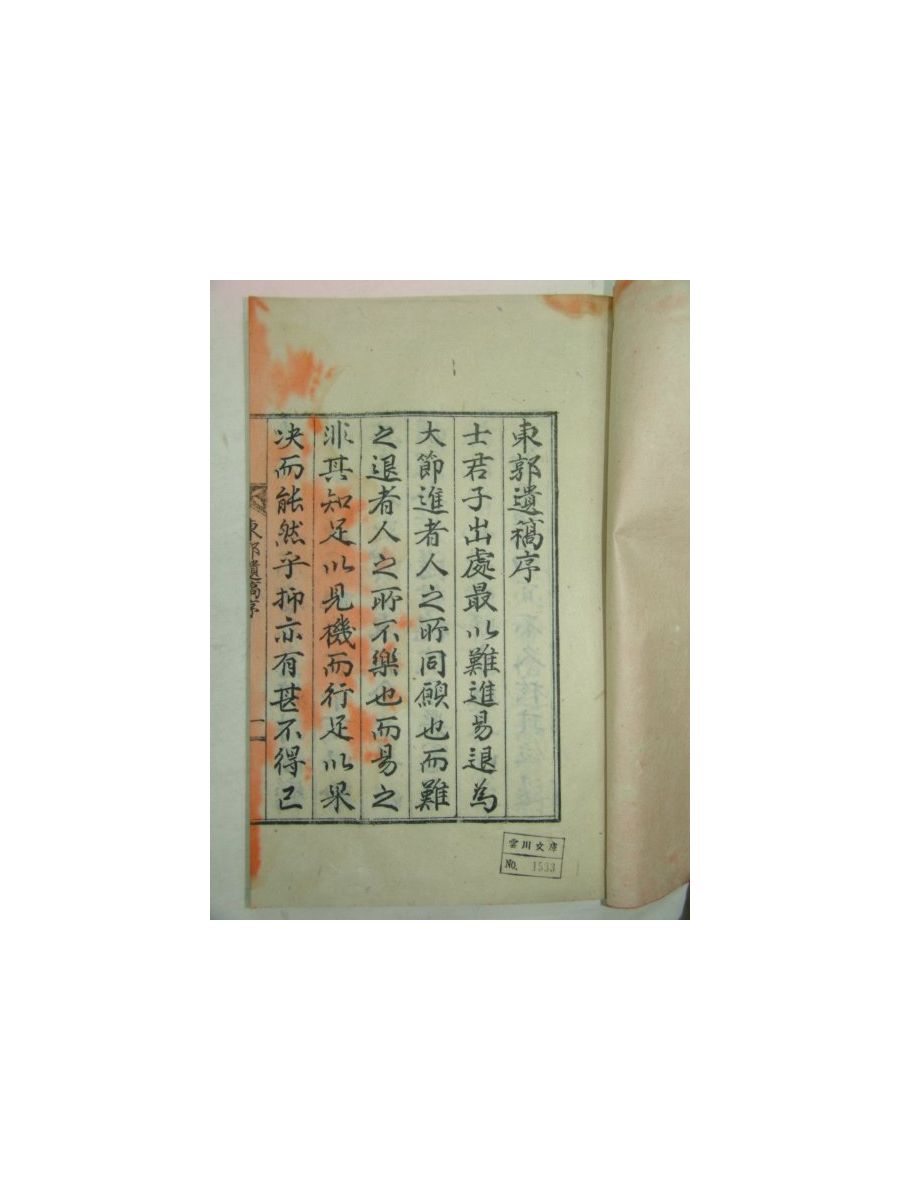 東郭遺稿序
士君子出處最以難進易退為
大節進者人之所同願也而難
之退者人之所不樂也而易之
非其知足以見機而行足以果
决而能然乎抑亦有甚不得已
東郭遺稿序
一
雲川文庫
No. 1533